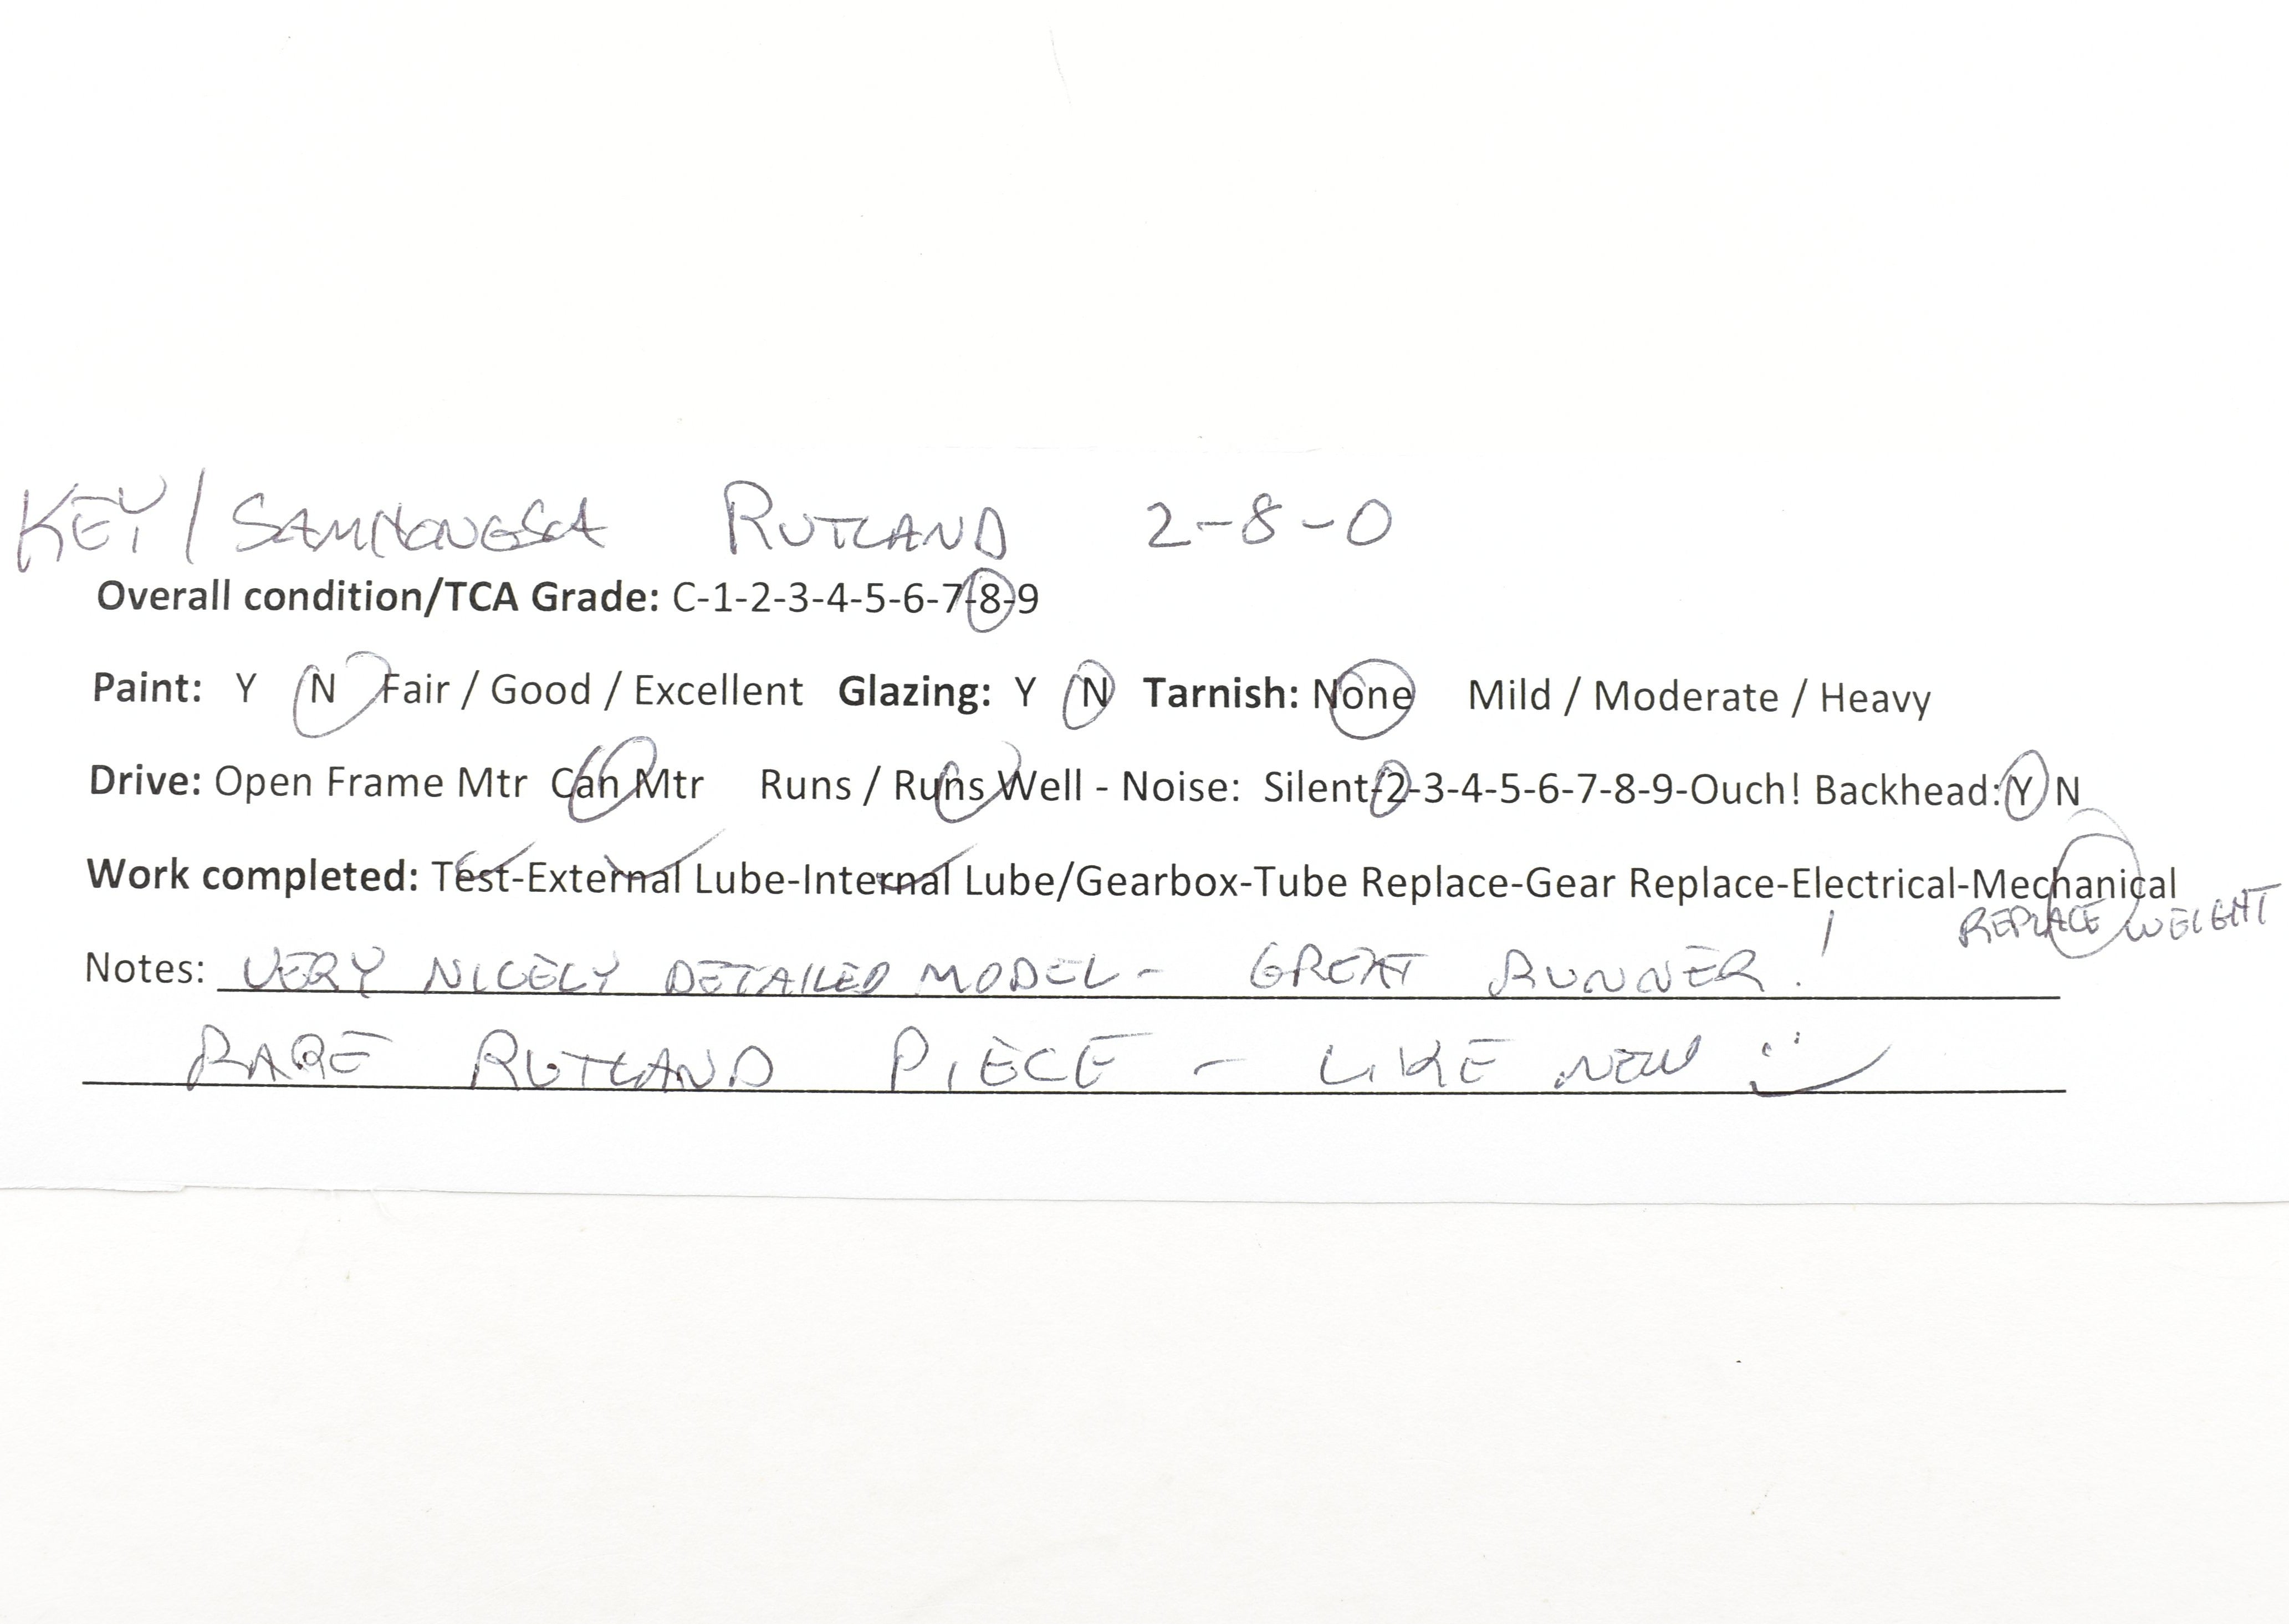 KEY / SAMHONGSA RUTLAND 2-8-0
Overall condition/TCA Grade: C-1-2-3-4-5-6-7-8-9
Paint: Y N Fair / Good / Excellent Glazing: Y N Tarnish: None Mild / Moderate / Heavy
Drive: Open Frame Mtr Can Mtr Runs / Runs Well - Noise: Silent-2-3-4-5-6-7-8-9-Ouch! Backhead: Y N
Work completed: Test-External Lube-Internal Lube/Gearbox-Tube Replace-Gear Replace-Electrical-Mechanical
REPLACE WEIGHT
Notes: VERY NICELY DETAILED MODEL - GREAT RUNNER!
RARE RUTLAND PIECE - LIKE NEW